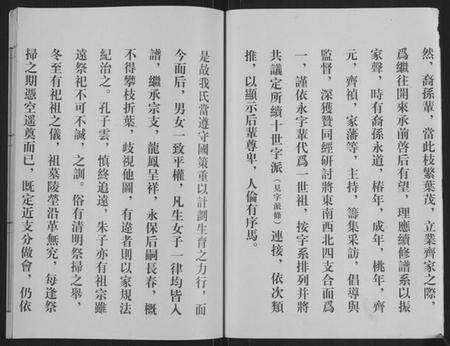 然,裔孫華,當此枝繁葉茂,立業齊家之際,
爲繼往開來承前啓后有望,理應續修譜系以振
家聲,時有裔孫永道,椿年,成年,桃年,齊
元,齊禎,家藩等,主持,籌集采訪,倡導與
監督,深獲贊同經研討將東南西北四支合而爲
一,謹依永字華代爲一世祖,按字系排列并將
共議定所續十世字派(見字派條)連接,依次類
推,以顯示后輩尊卑,人倫有序焉。
是故我氏當遵守國策重以計劃生育之力行,而
今而后,男女一致平權,凡生女子一律均皆入
譜,繼承宗支,龍鳳呈祥,永保后嗣長春,概
不得攀枝折葉,歧視他圖,有違者則以家規法
紀治之。孔子雲,慎終追遠,朱子亦有祖宗雖
遠祭祀不可不誠,之訓。俗有清明祭掃之舉,
冬至有祀祖之儀,祖墓陵塋沿革無究,每逢祭
掃之期憑空遥奠而已,既定近支分做會,仍依